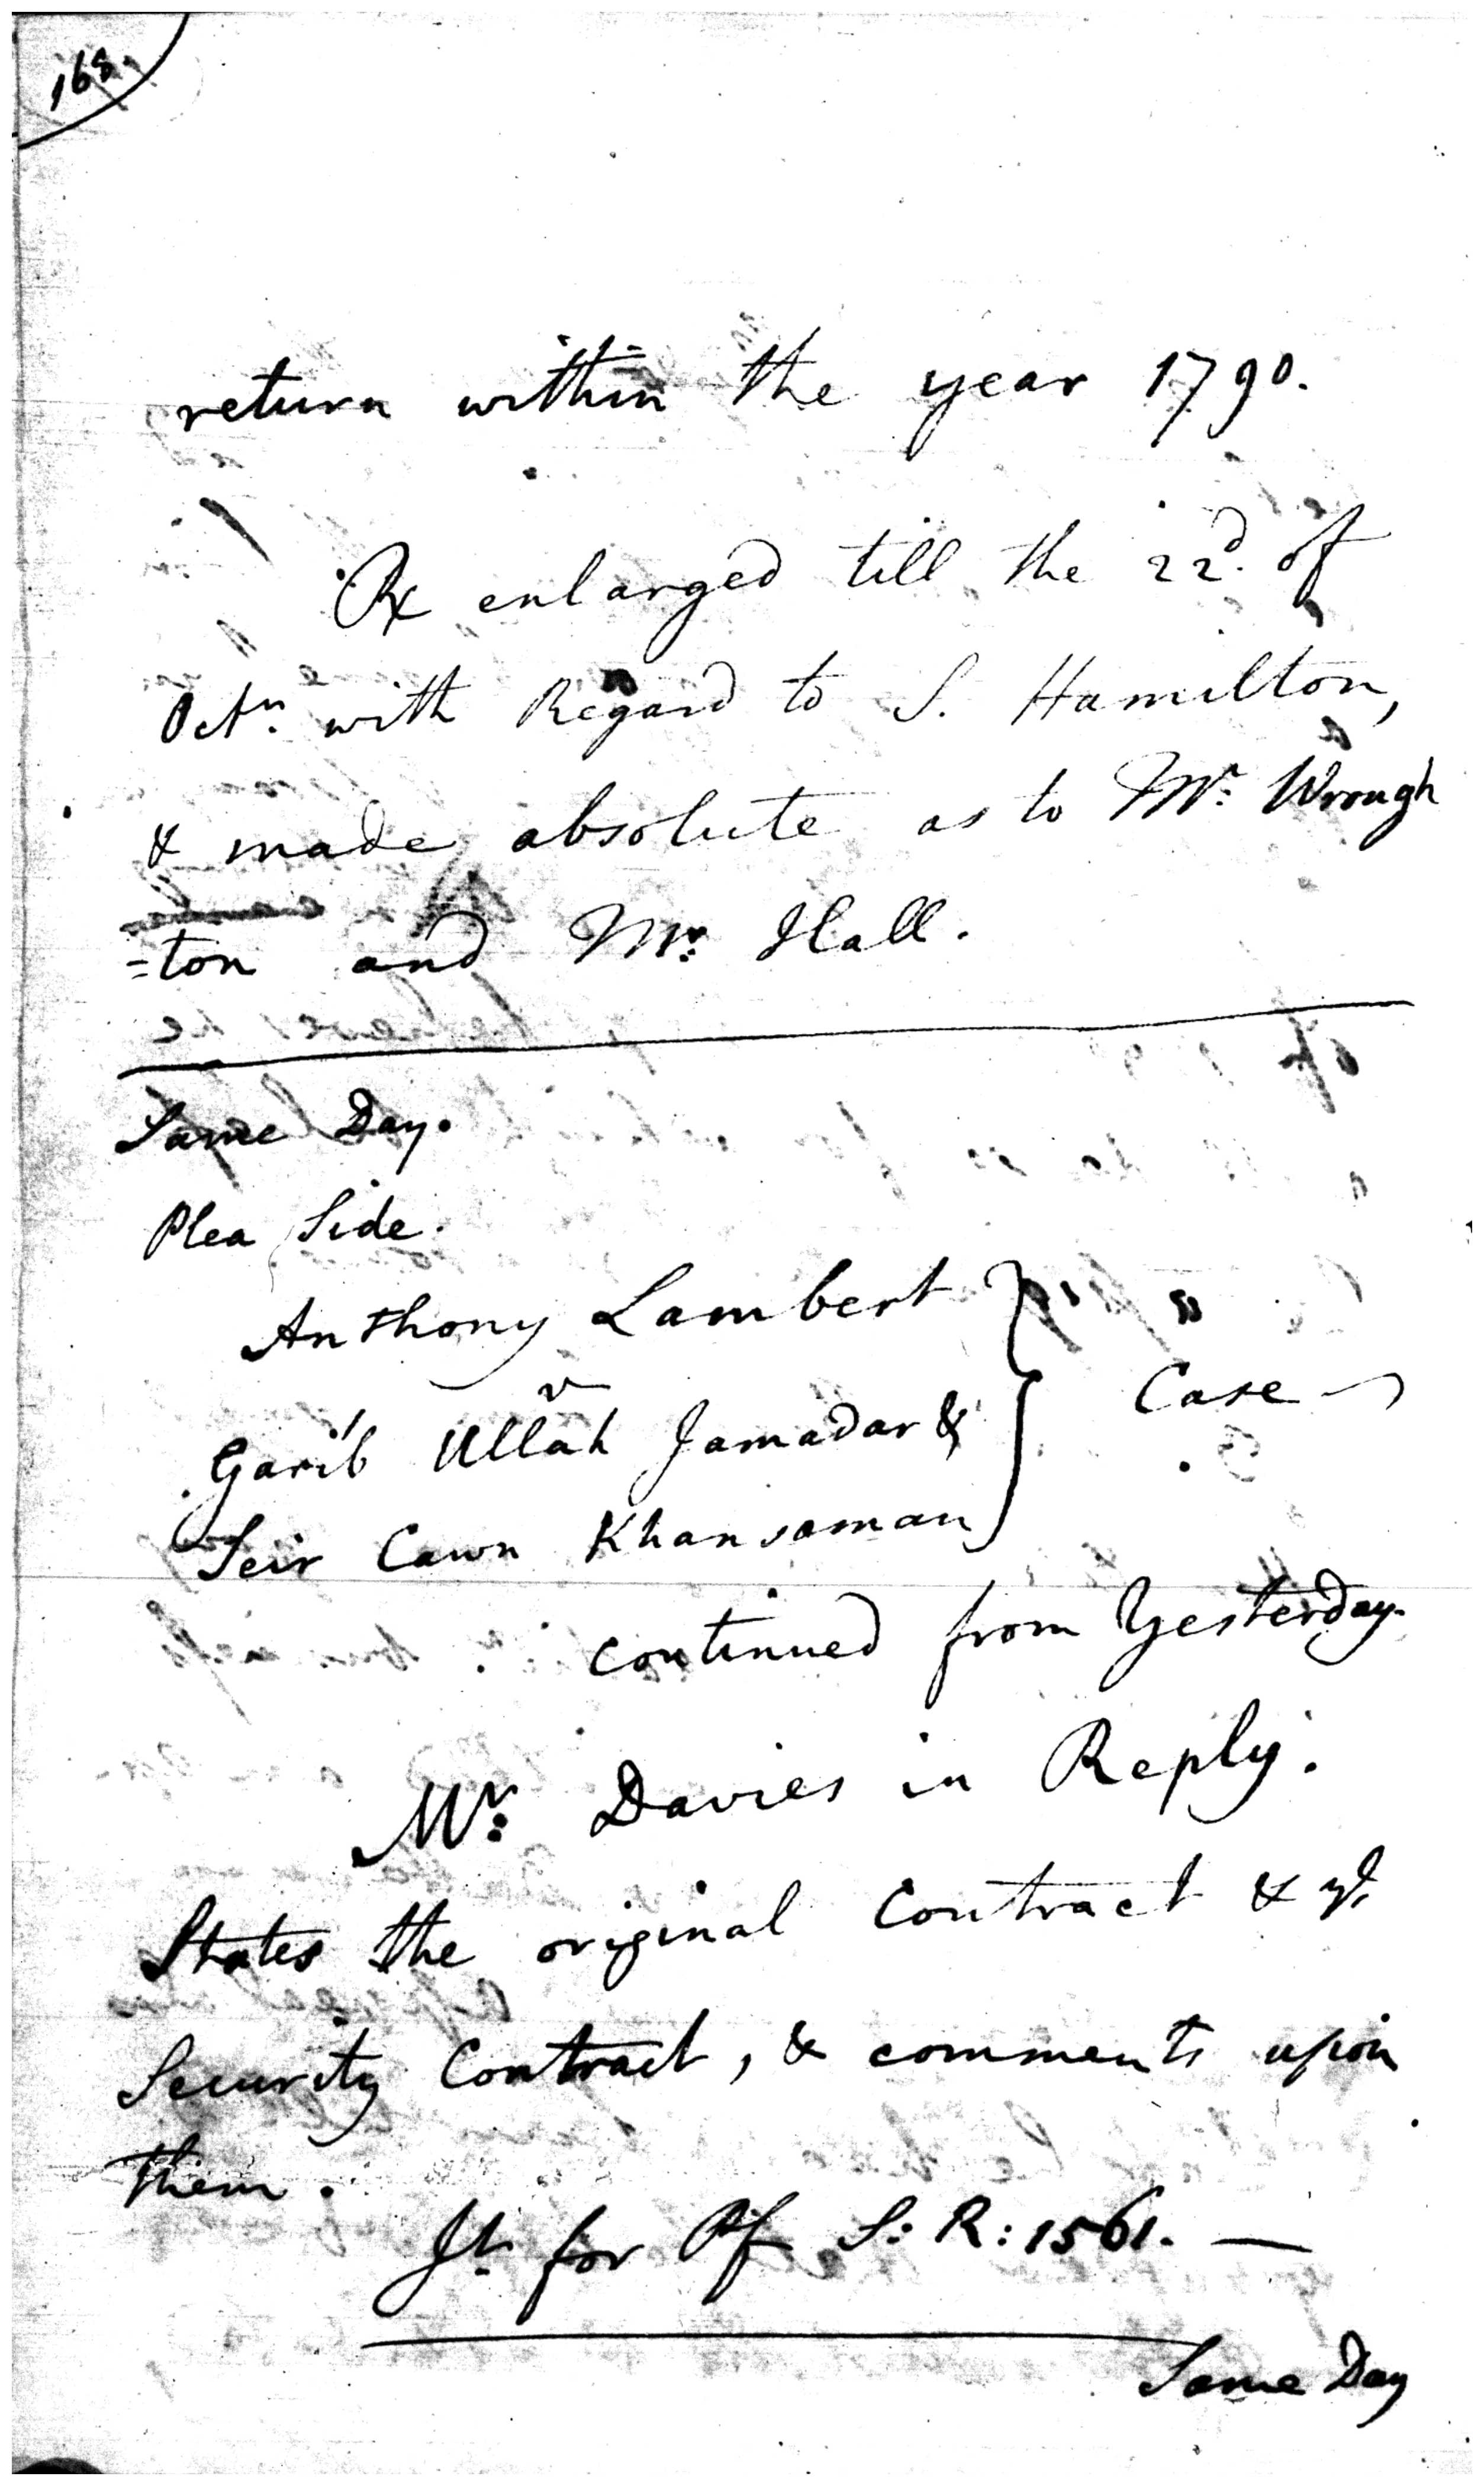 168.
return within the year 1790.
Rx enlarged till the 22d. of
Octr. with Regard to S. Hamilton,
& made absolute as to Mr. Wrough
=ton and Mr. Hall.
Same Day.
Plea Side.
Anthony Lambert
v
Garíb Ullah Jamadar &
Case
Seir Cawn Khansaman
continued from Yesterday.
Mr. Davies in Reply.
States the original Contract & ye
Security Contract, & comments upon
them.
Jt. for Pf S: R: 1561. —
Same Day